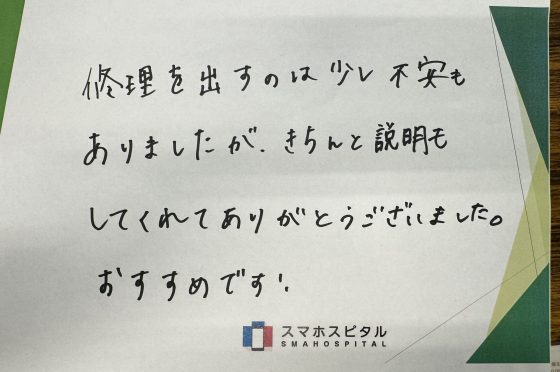 修理を出すのは少し不安も
ありましたが、きちんと説明も
してくれてありがとうございました。
おすすめです!
スマホスピタル
SMAHOSPITAL